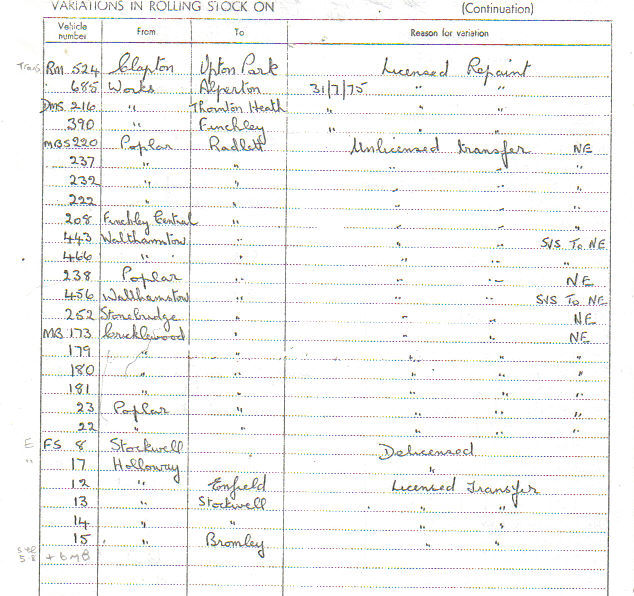 VARIATIONS IN ROLLING STOCK ON (Continuation)
Vehicle number From To Reason for variation
Trans RM 524 Clapton Upton Park Licensed Repaint
685 Works Alperton 31/7/75 " "
DMS 216 " Thornton Heath " " "
390 " Finchley " " "
MBS 220 Poplar Radlett Unlicensed transfer NE
237 " " " " "
232 " " " " "
222 " " " " "
208 Finchley Central " " " "
443 Walthamstow " " " S/S To NE
466 " " " " "
238 Poplar " " " NE
456 Walthamstow " " " S/S To NE
252 Stonebridge " " " NE
MB 173 Cricklewood " " " NE
179 " " " " "
180 " " " " "
181 " " " " "
23 Poplar " " " "
22 " " " " "
E FS 8 Stockwell Delicensed
" 17 Holloway "
12 " Enfield Licensed Transfer
13 " Stockwell " " "
14 " " " "
15 " Bromley " "
5-8 + 6 MB